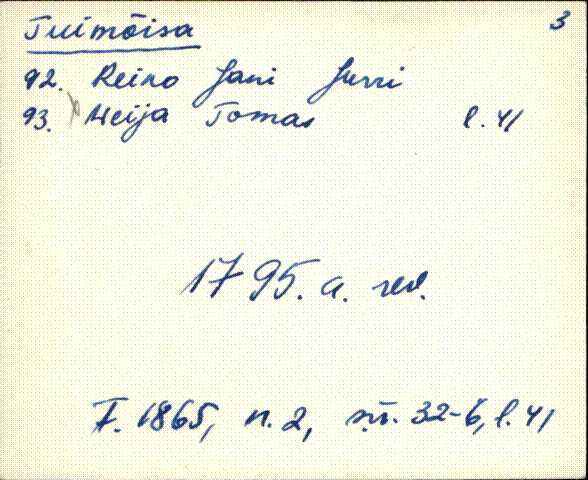 Tuimõisa 3
92. Reino Jani Jurri
93. Weija Tomas l. 41
1795. a. rev.
F. 1865, n. 2, sü. 32-6, l. 41